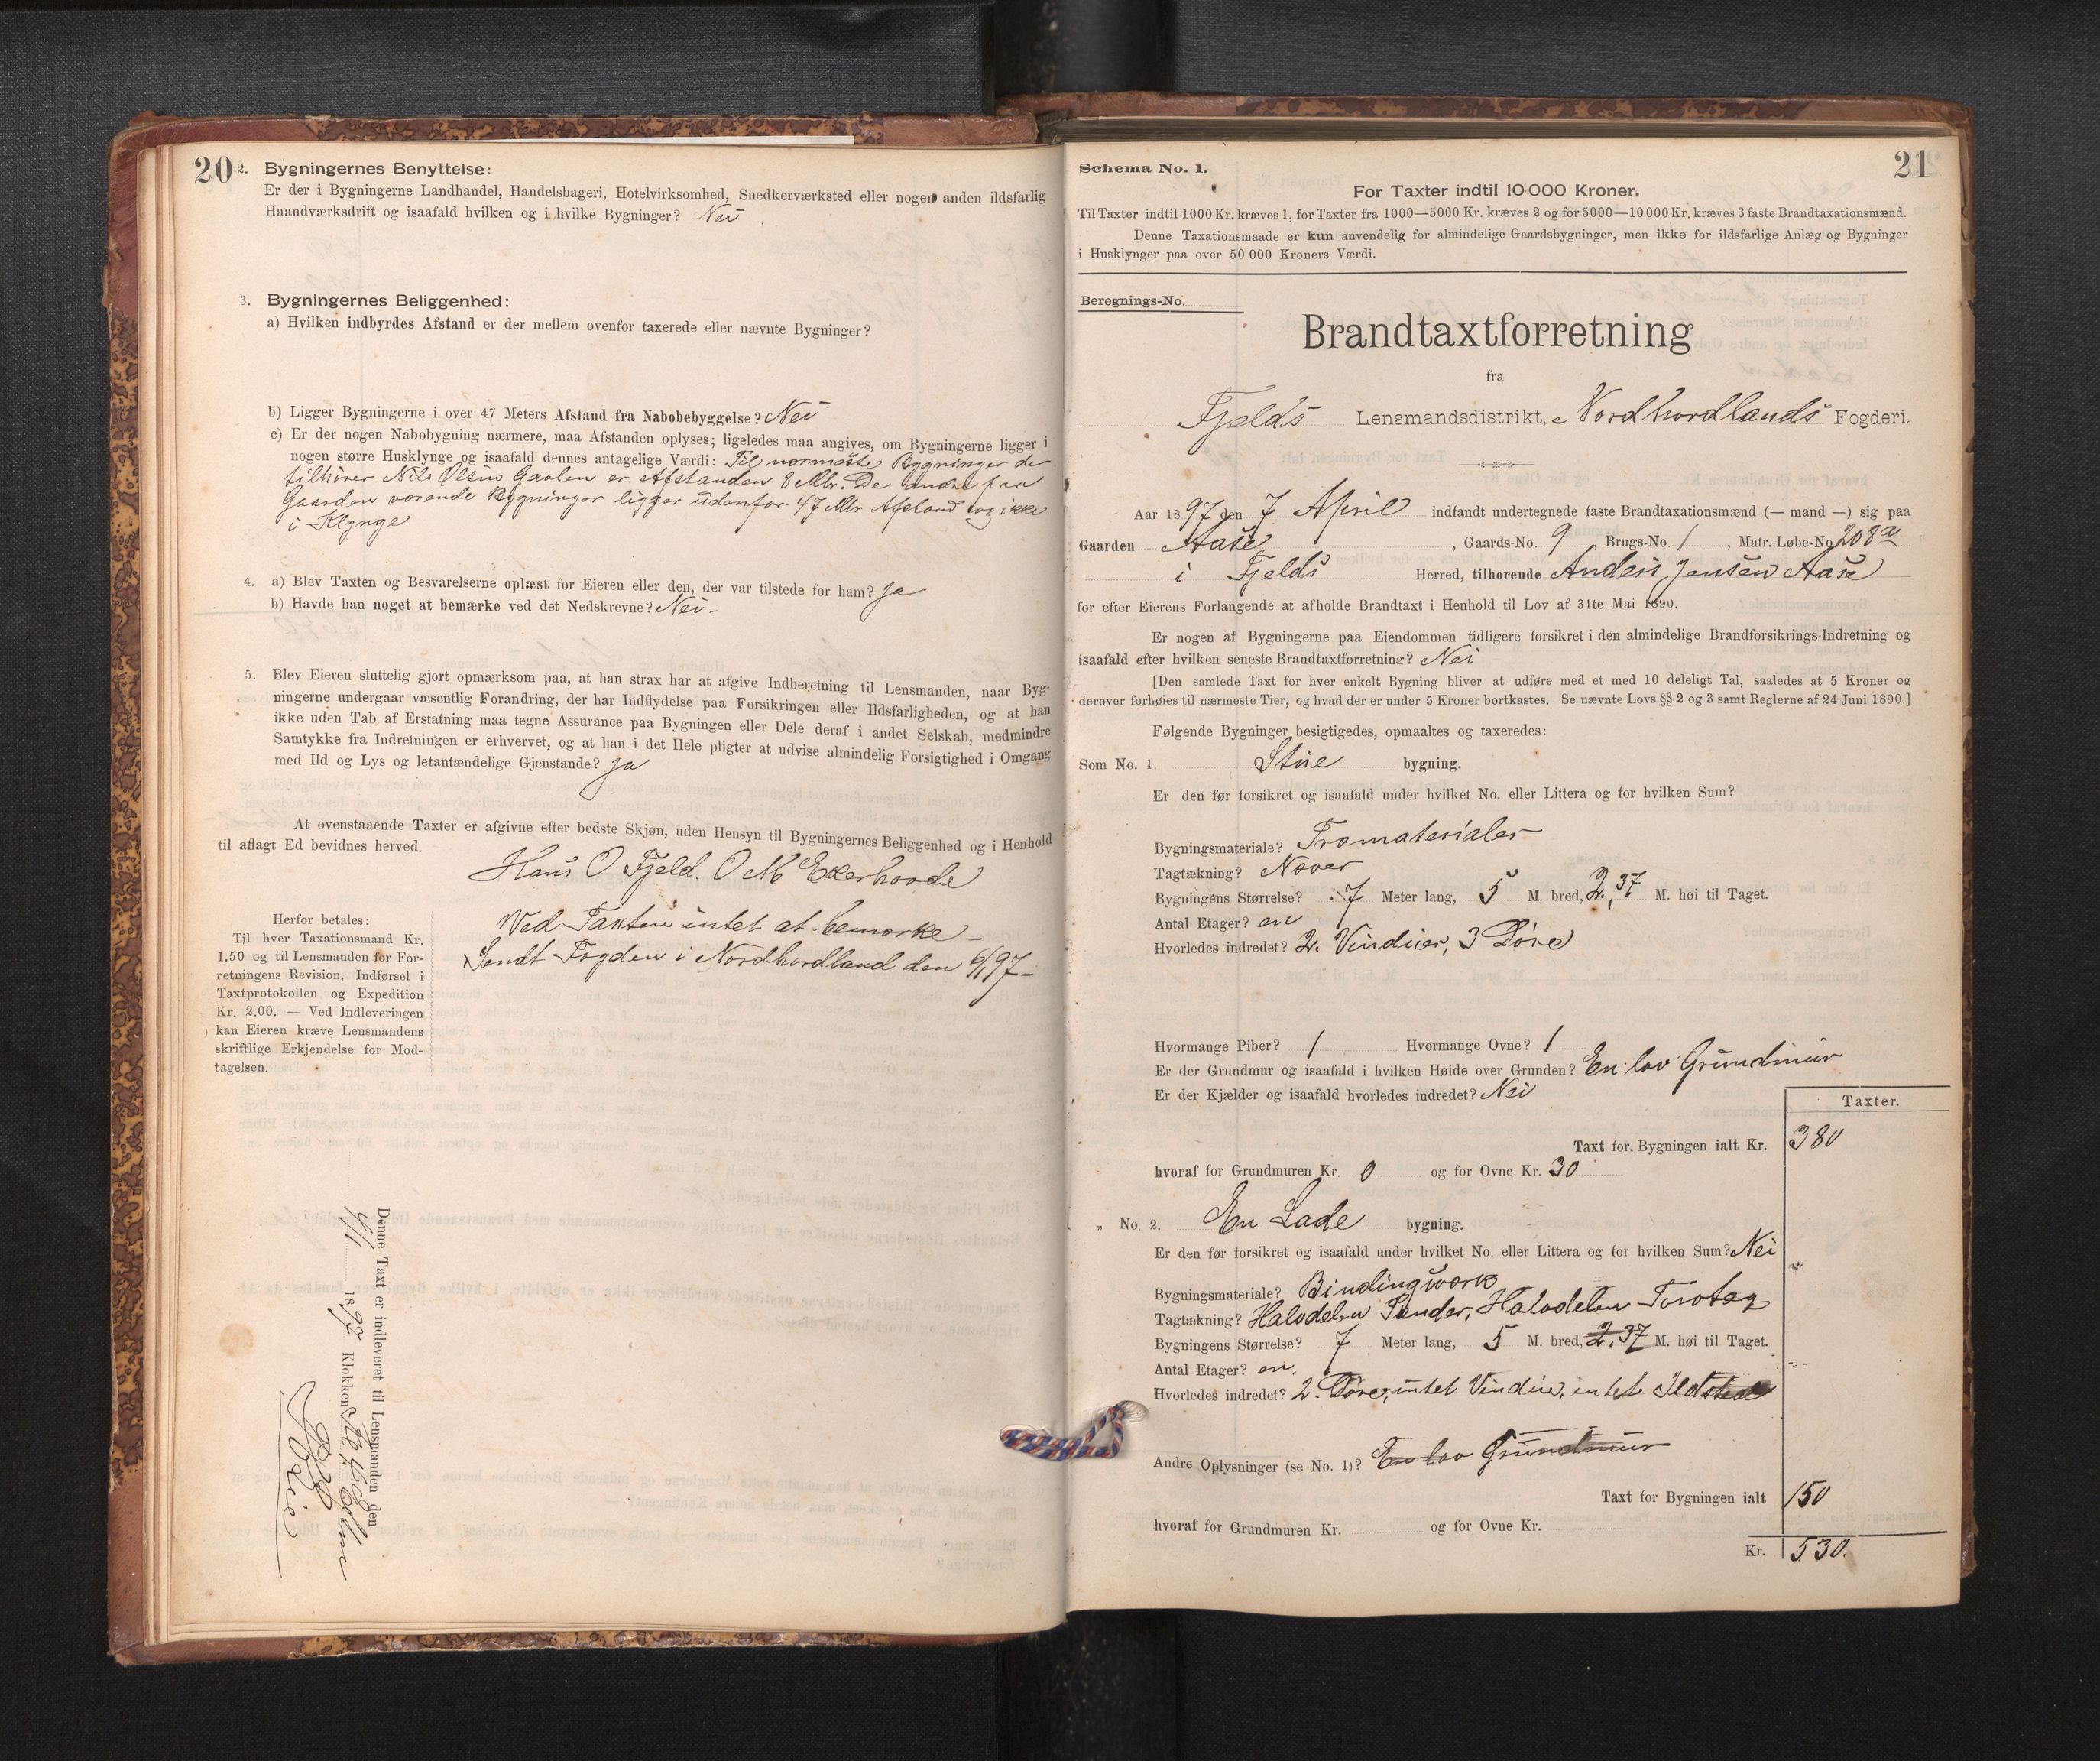 20
2. Bygningernes Benyttelse:
Er der i Bygningerne Landhandel, Handelsbageri, Hotelvirksomhed, Snedkerværksted eller nogen anden ildsfarlig
Haandværksdrift og isaafald hvilken og i hvilke Bygninger? Nei
3. Bygningernes Beliggenhed:
a) Hvilken indbyrdes Afstand er der mellem ovenfor taxerede eller nævnte Bygninger?
b) Ligger Bygningerne i over 47 Meters Afstand fra Nabobebyggelse? Nei
c) Er der nogen Nabobygning nærmere, maa Afstanden oplyses; ligeledes maa angives, om Bygningerne ligger i
nogen større Husklynge og isaafald dennes antagelige Værdi: Til nærmeste Bygninger der
tilhører Nils Olsen Gaalen er Afstanden 8 Mtr. De andre paa
Gaarden værende Bygninger ligger udenfor 47 Mtr Afstand og ikke
i Klynge
4. a) Blev Taxten og Besvarelserne oplæst for Eieren eller den, der var tilstede for ham? Ja
b) Havde han noget at bemærke ved det Nedskrevne? Nei-
5. Blev Eieren sluttelig gjort opmærksom paa, at han strax har at afgive Indberetning til Lensmanden, naar Byg-
ningerne undergaar væsentlig Forandring, der har Indflydelse paa Forsikringen eller Ildsfarligheden, og at han
ikke uden Tab af Erstatning maa tegne Assurance paa Bygningen eller Dele deraf i andet Selskab, medmindre
Samtykke fra Indretningen er erhvervet, og at han i det Hele pligter at udvise almindelig Forsigtighed i Omgang
med Ild og Lys og letantændelige Gjenstande? Ja
At ovenstaaende Taxter er afgivne efter bedste Skjøn, uden Hensyn til Bygningernes Beliggenhed og i Henhold
til aflagt Ed bevidnes herved.
Hans O Fjeld. O M Ekerhovde
Ved Taxten intet at bemærke -
Sendt Fogden i Nordhordland den
Herfor betales:
Til hver Taxationsmand Kr.
1.50 og til Lensmanden for For-
retningens Revision, Indførsel i
Taxtprotokollen og Expedition
Kr. 2.00. — Ved Indleveringen
kan Eieren kræve Lensmandens
skriftlige Erkjendelse for Mod-
tagelsen.
Denne Taxt er indleveret til Lensmanden den
1897 Klokken
21
Schema No. 1.
For Taxter indtil 10 000 Kroner.
Til Taxter indtil 1000 Kr. kræves 1, for Taxter fra 1000—5000 Kr. kræves 2 og for 5000—10 000 Kr. kræves 3 faste Brandtaxationsmænd.
Denne Taxationsmaade er kun anvendelig for almindelige Gaardsbygninger, men ikke for ildsfarlige Anlæg og Bygninger
i Husklynger paa over 50 000 Kroners Værdi.
Beregnings-No.
Brandtaxtforretning
fra
Fjelds Lensmandsdistrikt, Nordhordlands Fogderi.
Aar 1897 den 7 April indfandt undertegnede faste Brandtaxationsmænd (— mand —) sig paa
Gaarden Aase, Gaards-No. 9 Brugs-No. 1, Matr.-Løbe-No. 208a
i Fjelds Herred, tilhørende Anders Jensen Aase
for efter Eierens Forlangende at afholde Brandtaxt i Henhold til Lov af 31te Mai 1890.
Er nogen af Bygningerne paa Eiendommen tidligere forsikret i den almindelige Brandforsikrings-Indretning og
isaafald efter hvilken seneste Brandtaxtforretning? Nei
[Den samlede Taxt for hver enkelt Bygning bliver at udføre med et med 10 deleligt Tal, saaledes at 5 Kroner og
derover forhøies til nærmeste Tier, og hvad der er under 5 Kroner bortkastes. Se nævnte Lovs §§ 2 og 3 samt Reglerne af 24 Juni 1890.]
Følgende Bygninger besigtigedes, opmaaltes og taxeredes:
Som No. 1. Stue bygning.
Er den før forsikret og isaafald under hvilket No. eller Littera og for hvilken Sum?
Bygningsmateriale? Træmaterialer
Tagtækning? Næver
Bygningens Størrelse? 7 Meter lang, 5 M. bred, 2,37 M. høi til Taget.
Antal Etager? en
Hvorledes indredet? 2. Vinduer, 3 Døre
Hvormange Piber? 1 Hvormange Ovne? 1
Er der Grundmur og isaafald i hvilken Høide over Grunden? En lav Grundmur
Er der Kjælder og isaafald hvorledes indredet? Nei
Taxter.
Taxt for Bygningen ialt Kr. 380
hvoraf for Grundmuren Kr. 0 og for Ovne Kr. 30
„ No. 2. En Lade bygning.
Er den før forsikret og isaafald under hvilket No. eller Littera og for hvilken Sum? Nei
Bygningsmateriale? Bindingværk
Tagtækning? Halvdelen Pander, Halvdelen Torvtag
Bygningens Størrelse? 7 Meter lang, 5 M. bred, 2,37 M. høi til Taget.
Antal Etager? en.
Hvorledes indredet? 2. Døre, intet Vindue, intet Ildsted
Andre Oplysninger (se No. 1)? En lav Grundmur
Taxt for Bygningen ialt 150
hvoraf for Grundmuren Kr. og for Ovne Kr.
Kr. 530.